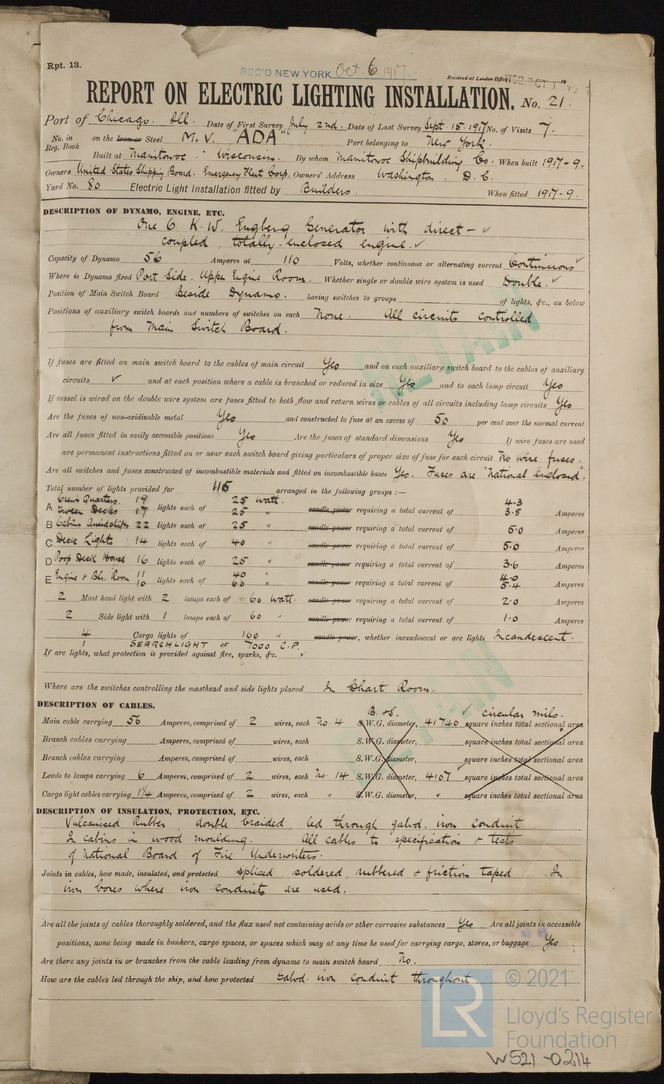 Rpt. 13.
REC'D NEW YORK Oct 6 1917
Received at London Office WED. OCT
REPORT ON ELECTRIC LIGHTING INSTALLATION. No. 21.
Port of Chicago. Ill. Date of First Survey July 2nd. Date of Last Survey Sept 15. 1917 No. of Visits 7.
No. in Reg. Book on the Iron or Steel M.V. "ADA" Port belonging to New York.
Built at Manitowoc Wisconsin. By whom Manitowoc Shipbuilding Co. When built 1917-9.
Owners United States Shipping Board. Emergency Fleet Corp. Owners' Address Washington. D.C.
Yard No. 80 Electric Light Installation fitted by Builders. When fitted 1917-9.
DESCRIPTION OF DYNAMO, ENGINE, ETC.
One 6 K.W. Engberg Generator with direct- ✓
coupled, totally enclosed engine. ✓
Capacity of Dynamo 56 Amperes at 110 Volts, whether continuous or alternating current Continuous ✓
Where is Dynamo fixed Port Side. Upper Engine Room. Whether single or double wire system is used Double. ✓
Position of Main Switch Board Beside Dynamo. having switches to groups of lights, &c., as below
Positions of auxiliary switch boards and numbers of switches on each None. All circuits controlled
from Main Switch Board.
If fuses are fitted on main switch board to the cables of main circuit Yes and on each auxiliary switch board to the cables of auxiliary
circuits ✓ and at each position where a cable is branched or reduced in size Yes and to each lamp circuit Yes
If vessel is wired on the double wire system are fuses fitted to both flow and return wires or cables of all circuits including lamp circuits Yes
Are the fuses of non-oxidizable metal Yes and constructed to fuse at an excess of 50 per cent over the normal current
Are all fuses fitted in easily accessible positions Yes Are the fuses of standard dimensions Yes If wire fuses are used
are permanent instructions fitted on or near each switch board giving particulars of proper size of fuse for each circuit No wire fuses.
Are all switches and fuses constructed of incombustible materials and fitted on incombustible bases Yes. Fuses are "National enclosed".
Total number of lights provided for 115 arranged in the following groups :—
A Crew's Quarters. 19 25 watt. 4.3
Tween Decks 17 lights each of 25 " candle power requiring a total current of 3.8 Amperes
B Cabins Amidships 22 lights each of 25 " candle power requiring a total current of 5.0 Amperes
C Deck Lights 14 lights each of 40 " candle power requiring a total current of 5.0 Amperes
D Poop Deck House 16 lights each of 25 " candle power requiring a total current of 3.6 Amperes
E Engine & Blr. Room 11 40 " 4.0
10 lights each of 60 " candle power requiring a total current of 5.4 Amperes
2 Mast head light with 2 lamps each of 60 watt. candle power requiring a total current of 2.0 Amperes
2 Side light with 1 lamps each of 60 " candle power requiring a total current of 1.0 Amperes
4 Cargo lights of 160 " candle power, whether incandescent or arc lights Incandescent.
1 SEARCHLIGHT of 7000 C.P.
If arc lights, what protection is provided against fire, sparks, &c. ✓
Where are the switches controlling the masthead and side lights placed In Chart Room.
DESCRIPTION OF CABLES. B. & S. ✓ circular mils.
Main cable carrying 56 Amperes, comprised of 2 wires, each No 4 S.W.G. diameter, 41740 square inches total sectional area
Branch cables carrying Amperes, comprised of wires, each S.W.G. diameter, square inches total sectional area
Branch cables carrying Amperes, comprised of wires, each S.W.G. diameter, square inches total sectional area
Leads to lamps carrying 6 Amperes, comprised of 2 wires, each No. 14 S.W.G. diameter, 4107 square inches total sectional area
Cargo light cables carrying 1 1/4 Amperes, comprised of 2 wires, each " S.W.G. diameter, " square inches total sectional area
DESCRIPTION OF INSULATION, PROTECTION, ETC.
Vulcanised Rubber, double braided, led through galvd. iron conduit
In cabins in wood moulding. All cables to specification & tests
of National Board of Fire Underwriters.
Joints in cables, how made, insulated, and protected spliced, soldered, rubbered & friction taped In
iron boxes where iron conduits are used.
Are all the joints of cables thoroughly soldered, and the flux used not containing acids or other corrosive substances Yes Are all joints in accessible
positions, none being made in bunkers, cargo spaces, or spaces which may at any time be used for carrying cargo, stores, or baggage Yes
Are there any joints in or branches from the cable leading from dynamo to main switch board No.
How are the cables led through the ship, and how protected Galvd. iron conduit throughout.
RETAIN
RETAIN
LR
© 2021
Lloyd's Register
Foundation
W521-0214